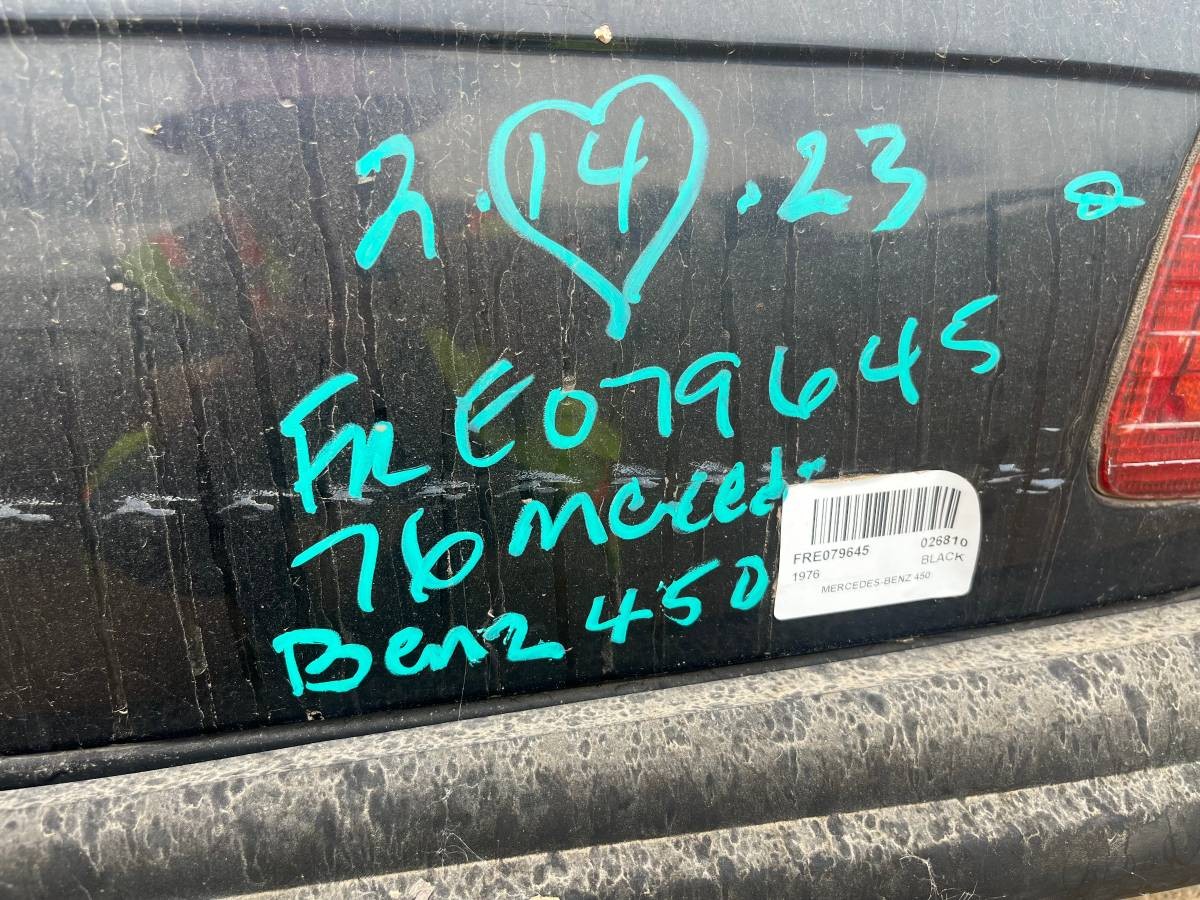 2.14.23 2
FRE079645
76 Merced
Benz 450
FRE079645 026810
1976 BLACK
MERCEDES-BENZ 450